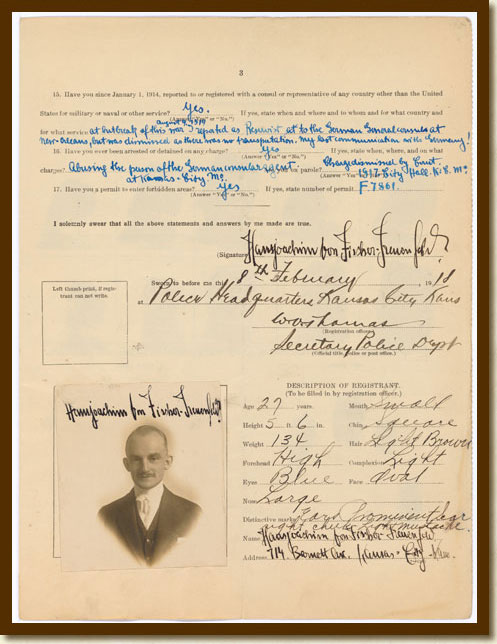 3
15. Have you since January 1, 1914, reported to or registered with a consul or representative of any country other than the United
States for military or naval or other service? Yes. If yes, state when and where and to whom and for what country and
(Answer "Yes" or "No.")
August 4, 1914
for what service at outbreak of this war I reported as Reservist at to the German General consul at
New-Orleans, but was dismissed as there was no transportation. My last communication with Germany!
16. Have you ever been arrested or detained on any charge? yes If yes, state when, where, and on what
(Answer "Yes" or "No.")
charge? Abusing the person of the German consular agent. on parole? Charge dismissed by Court.
at Kansas-City Mo. (Answer "Yes" 1917 City Hall. K.C. Mo.
17. Have you a permit to enter forbidden areas? yes If yes, state number of permit F.7861.
(Answer "Yes" or "No.")
I solemnly swear that all the above statements and answers by me made are true.
(Signature Hansjoachim von Fischer-Treuenfeld
Sworn to before me this 8th February 1918
at Police Headquarters Kansas City Kans
(Registration officer.)
Secretary Police Dept
(Official title, police or post office.)
Left thumb print, if registrant
can not write.
Hansjoachim von Fischer-Treuenfeld
DESCRIPTION OF REGISTRANT.
(To be filled in by registration officer.)
Age 27 years. Mouth Small
Height 5 ft. 6 in. Chin Square
Weight 134 Hair Light Brown
Forehead High Complexion Light
Eyes Blue Face Oval
Nose Large
Distinctive marks prominent scar
right cheek
Name Hansjoachim von Fischer-Treuenfeld
Address 714 Barnett Ave. Kansas-City